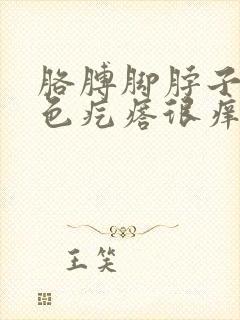 胳膊脚脖子
色疙瘩很痒
王笑